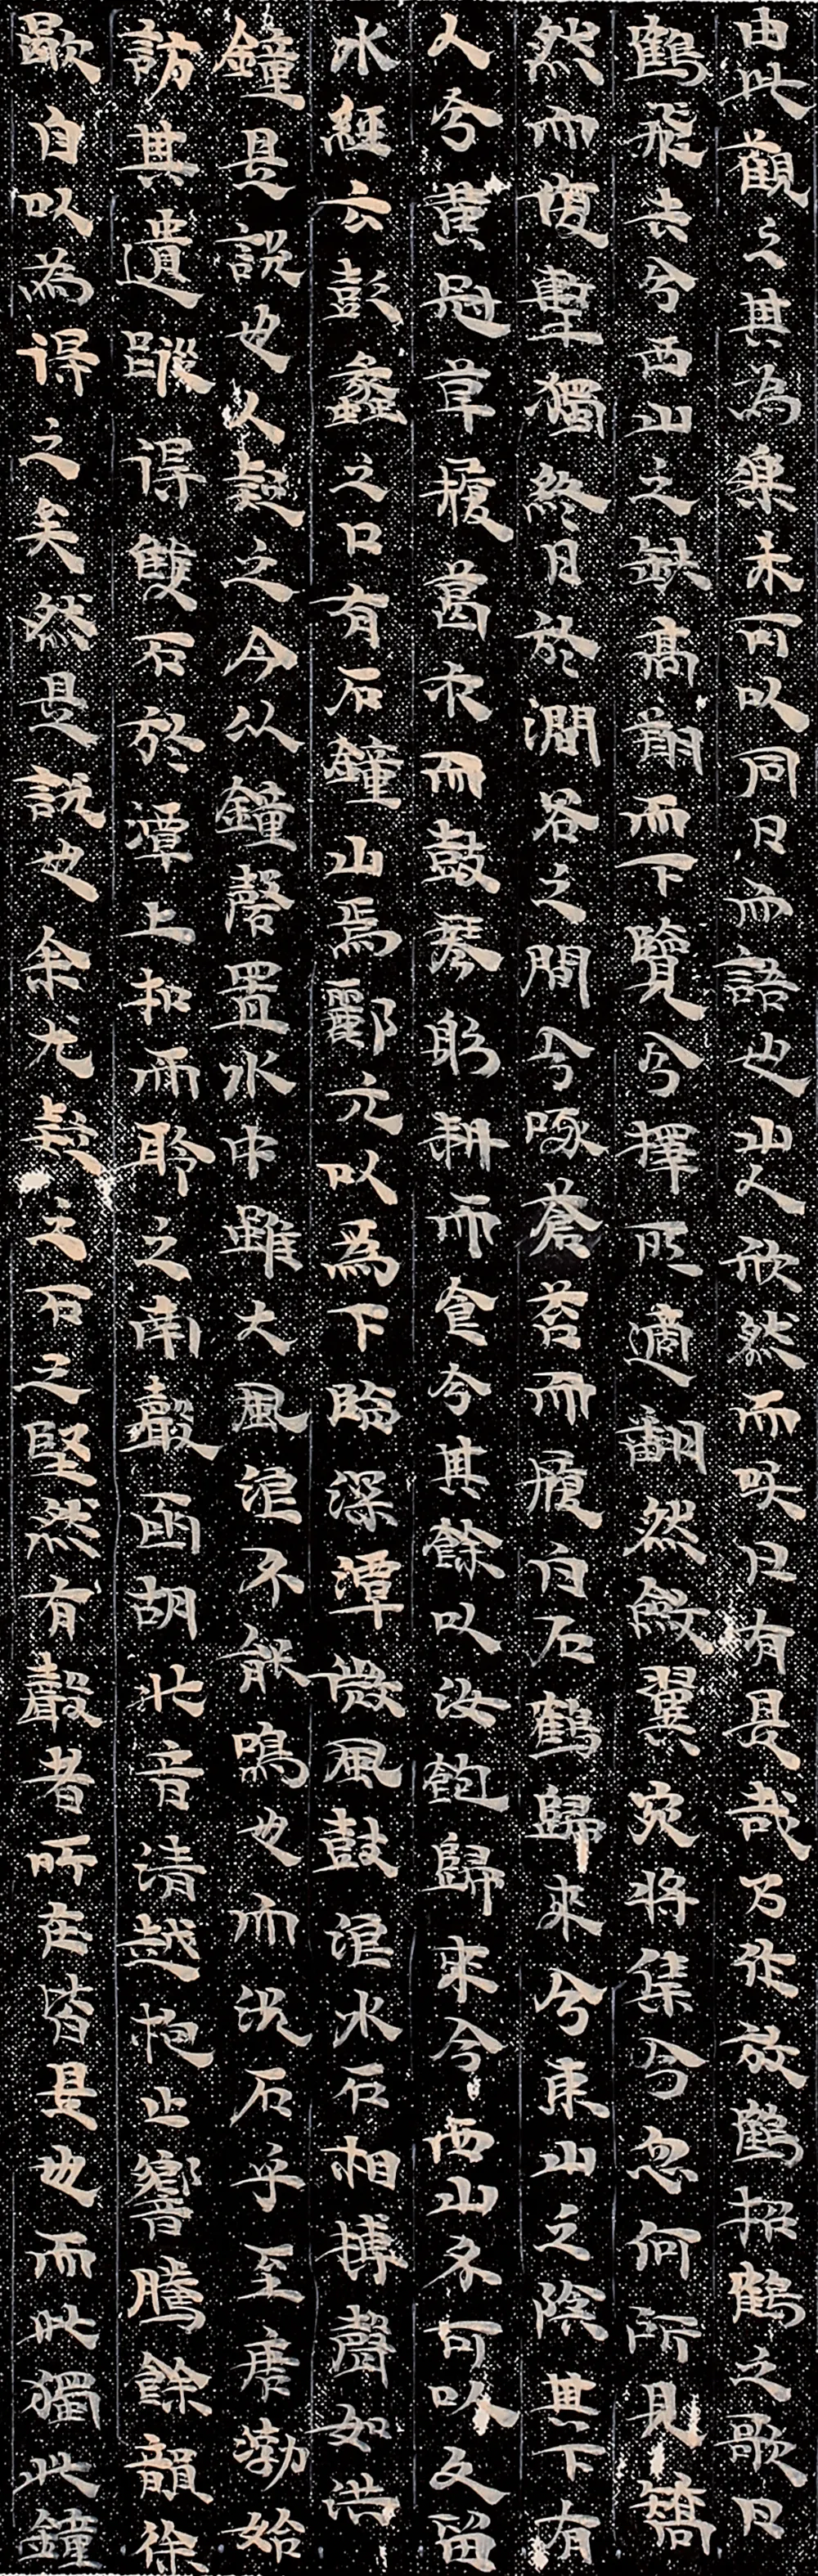 由此觀之其為樂未可以同日而語也山人欣然而𥬇曰有是哉乃作放鶴招鶴之歌曰
鶴飛去兮西山之缺高翔而下覽兮擇所適翻然斂翼宛將集兮忽何所見矯
然而復擊獨終日於澗谷之間兮啄蒼苔而履白石鶴歸來兮東山之陰其下有
人兮黃冠草履葛衣而鼓琴躬耕而食兮其餘以汝飽歸來兮西山不可以久留
水經云彭蠡之口有石鐘山焉酈元以為下臨深潭微風鼓浪水石相搏聲如洪
鐘是說也人疑之今以鐘磬置水中雖大風浪不能鳴也而況石乎至唐渤始
訪其遺蹤得雙石於潭上扣而聆之南聲函胡北音清越枹止響騰餘韻徐
歇自以為得之矣然是說也余尤疑之石之堅然有聲者所在皆是也而此獨此鐘